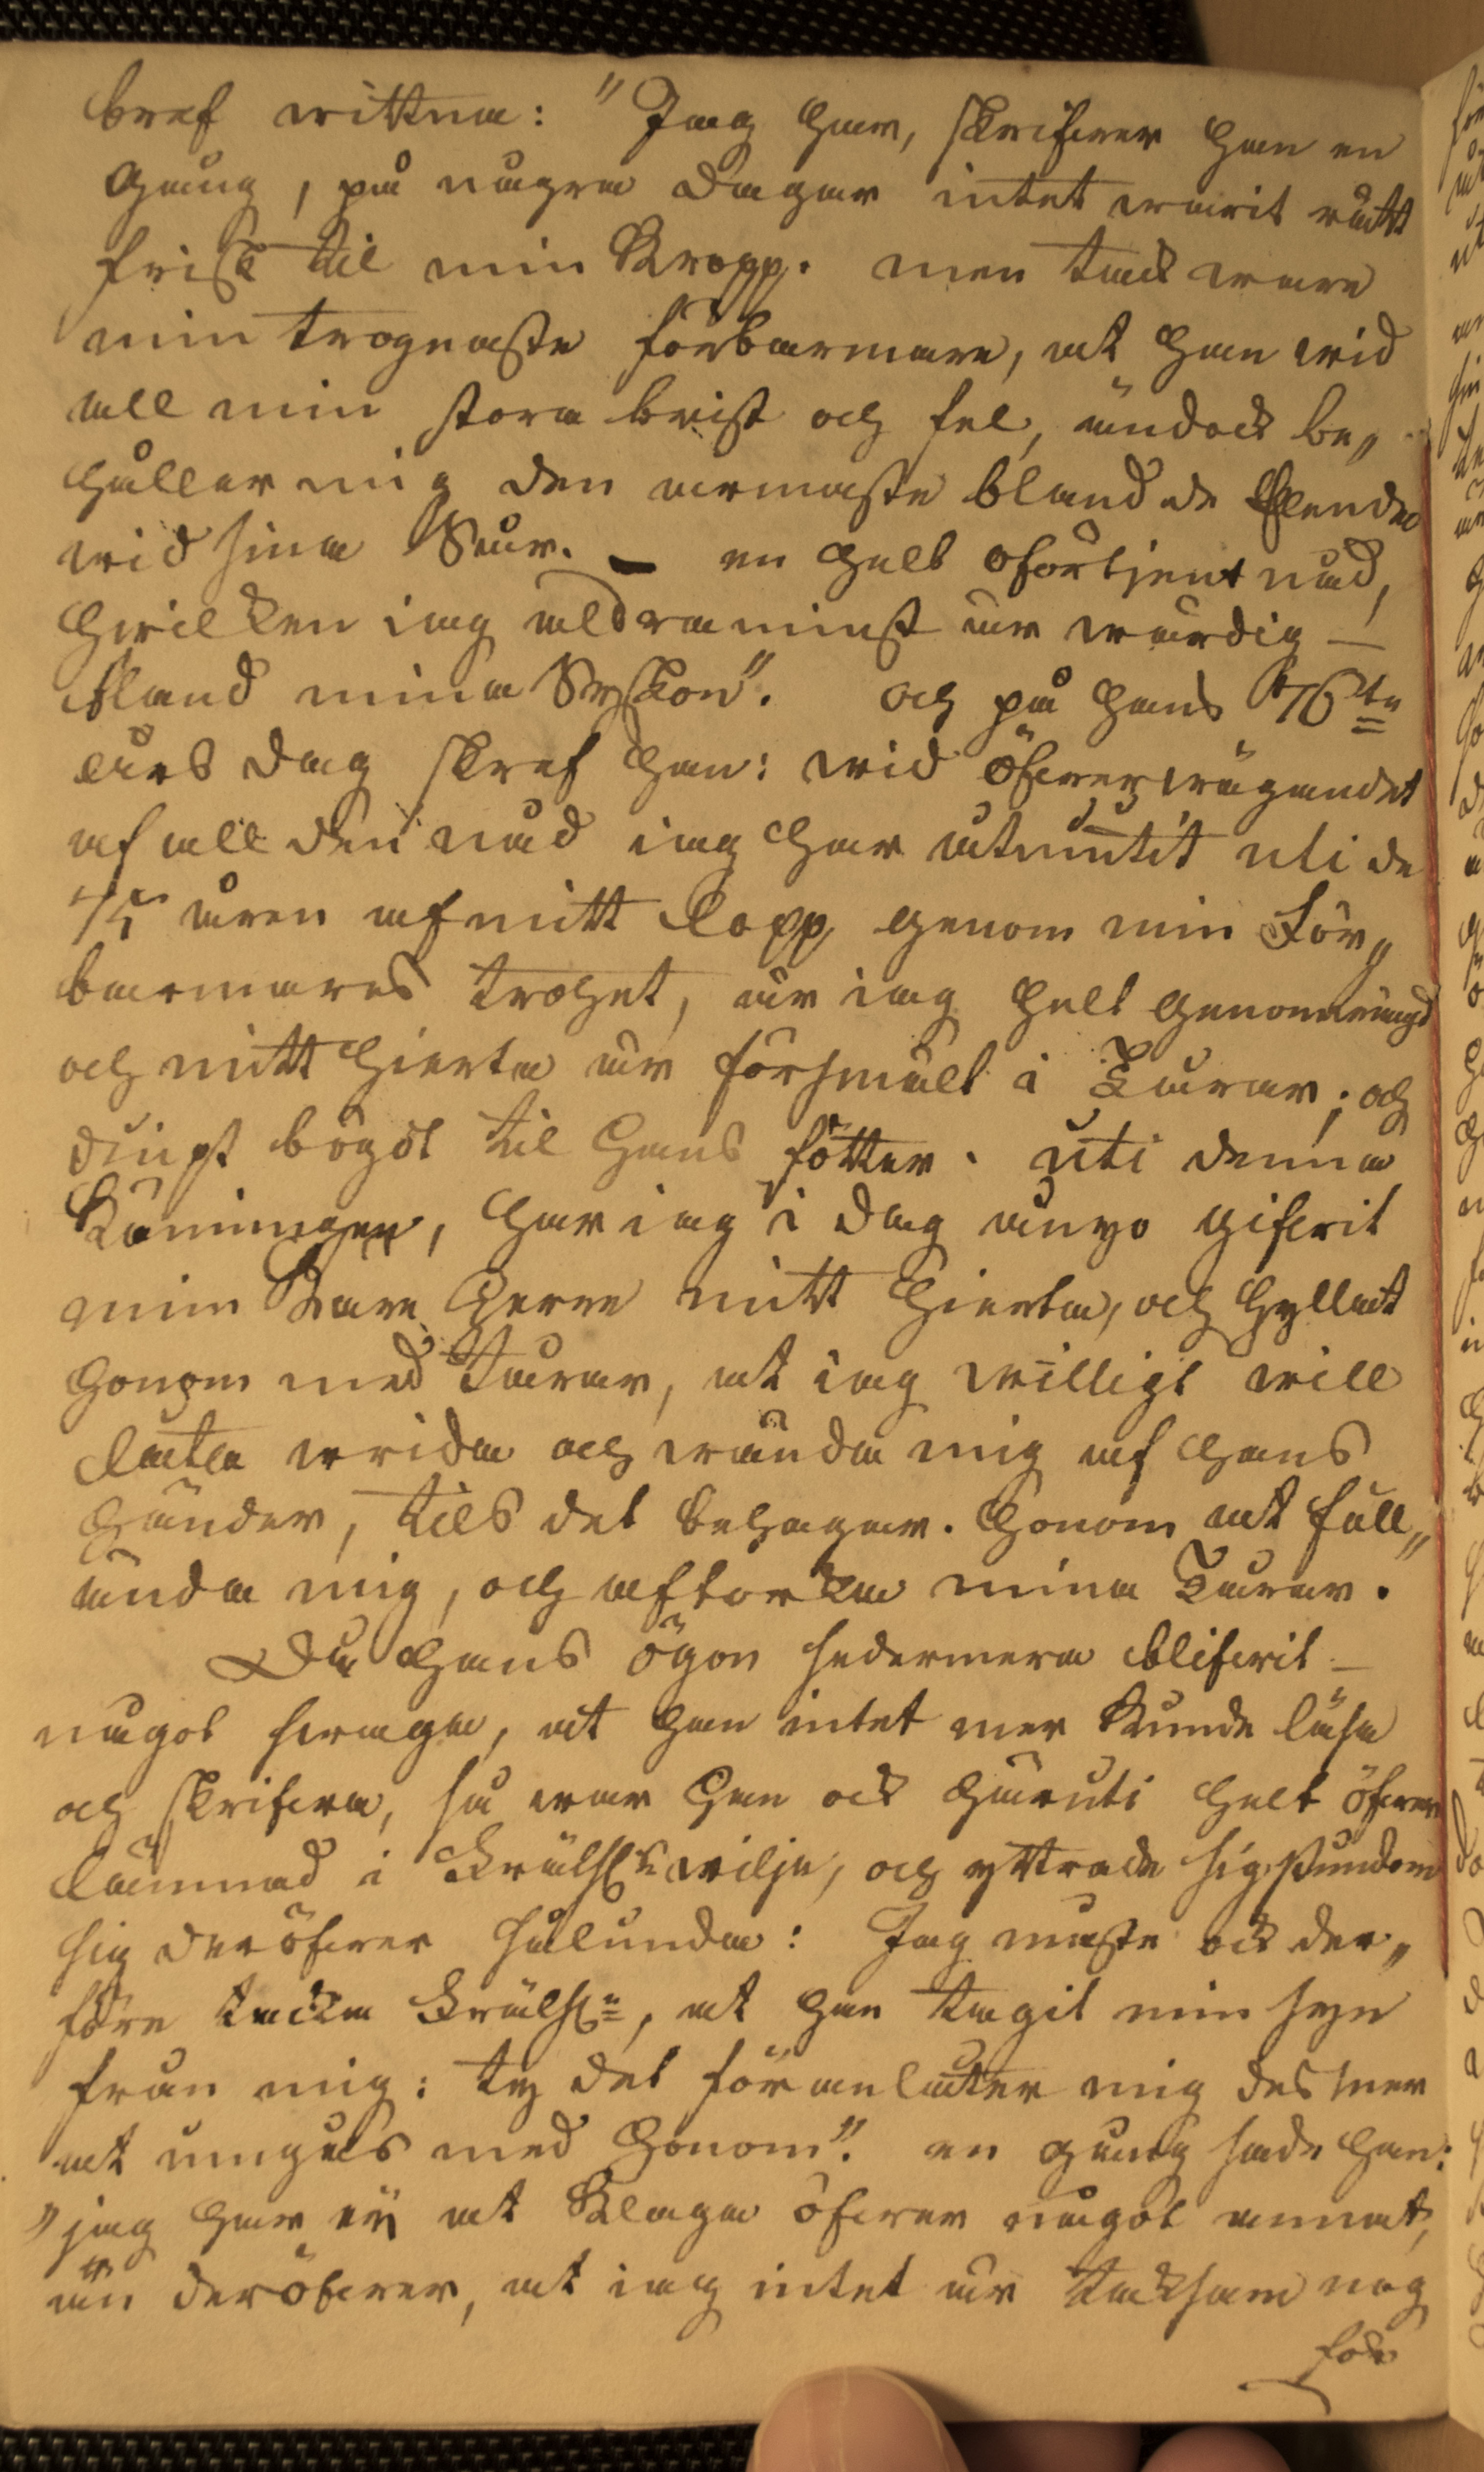 bref wittna: "Jag har, skrifwer han en
gång, på någre dagar intet warit rätt
frisk til min Kropp. men tack ware
min trognaste förbarmare, at han wid
all min stora brist och fel, ändock be„
håller mig den armaste bland de Elenda
wid sina Sår. — en helt oförtjent nåd,
hwilken iag aldraminst är wärdig —
ibland mina Syskon". och på hans 76te
års dag skref han: wid öfwerwägandet
af all den nåd iag har utnutit uti de
75 åren af mitt Lopp genom min För„
barmares trohet, är iag helt genomträngd
och mitt hierta är försmält i Tårar, och
diupt bögdt til Hans fötter. Uti denna
Känningen, har iag i dag ånyo gifwit
min Käre Herre mitt Hierta, och hyllat
honom med tårar, at iag willigt will
låta wrida och wända mig af Hans
händer, tils det behagar Honom at full„
ända mig, och aftorka mina Tårar.
Då Hans ögon sedermera blifwit —
något swaga, at han intet mer kunde läsa
och skrifwa, så war han ock häruti helt öfwer
lämnad i Frälsns wilje, och yttrade sig stundom
sig deröfwer sålunda: Jag måste ock der„
före tacka Frälsn, at han tagit min syn
från mig: ty det föranlåter mig des mer
at umgås med Honom". en gång sade han:
"jag har ej at Klaga öfwer något annat,
än deröfwer, at iag intet är tacksam nog
för